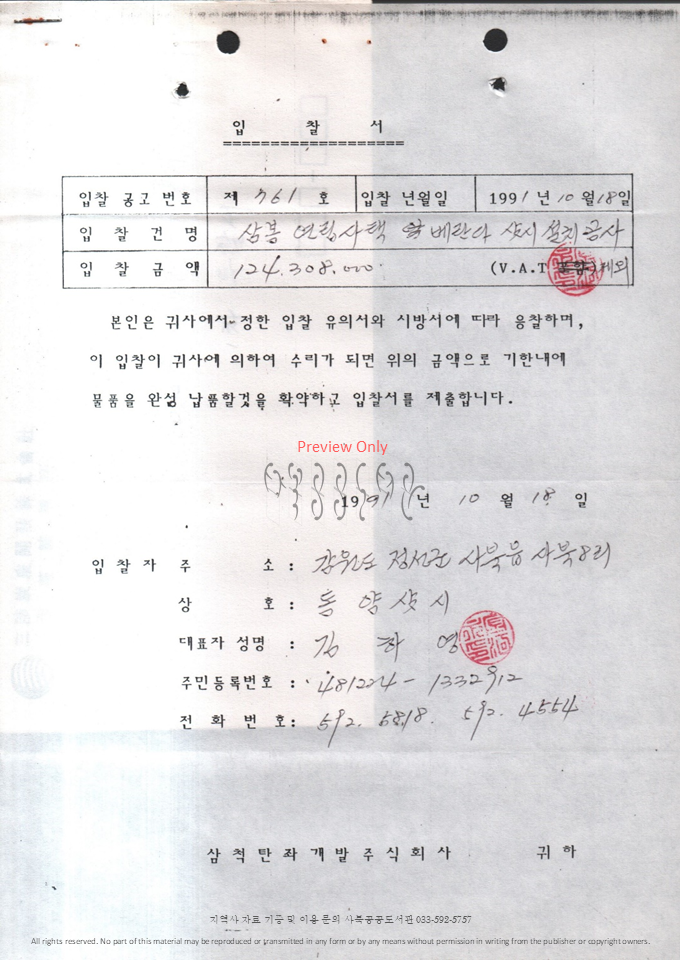 입 찰 서
입찰 공고 번호 제 761 호 입찰 년월일 1991년 10월 18일
입 찰 건 명 삼봉 연립사택 앞 베란다 샷시 설치공사
입 찰 금 액 124.308.000 (V.A.T 포함) 제외
본인은 귀사에서 정한 입찰 유의서와 시방서에 따라 응찰하며,
이 입찰이 귀사에 의하여 수리가 되면 위의 금액으로 기한내에
물품을 완성 납품할것을 확약하고 입찰서를 제출합니다.
Preview Only
1991 년 10 월 18 일
입찰자 주 소 : 강원도 정선군 사북읍 사북8리
상 호 : 동양샷시
대표자 성명 : 김 하 영
주민등록번호 : 481224-1332912
전 화 번 호 : 592. 5818. 592. 4554
삼척탄좌개발주식회사 귀하
지역사 자료 기증 및 이용 문의 사북공공도서관 033-592-5757
All rights reserved. No part of this material may be reproduced or transmitted in any form or by any means without permission in writing from the publisher or copyright owners.